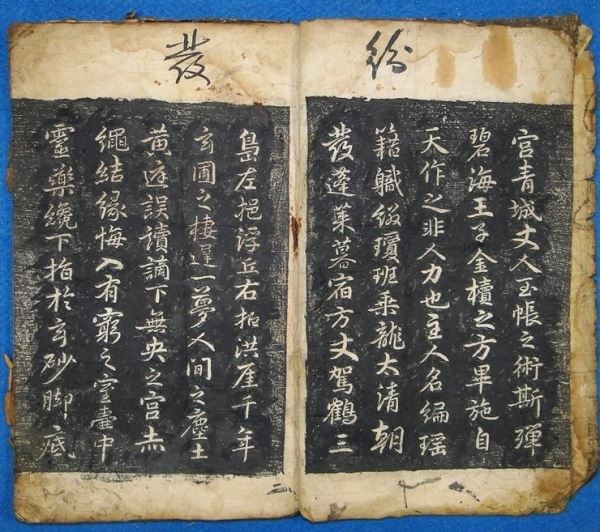 紛
宫青城丈人玉帳之術斯殫
碧海王子金櫝之方畢施自
天作之非人力也主人名編瑶
籍職綴瓊班乘龍太清朝
發蓬萊暮宿方丈駕鶴三
發
島左挹浮丘右拍洪厓千年
玄圃之棲遲一夢人間之塵土
黄庭誤讀謫下無央之宫赤
繩結緣悔入有窮之室臺中
靈藥纔下指於玄砂脚底
二